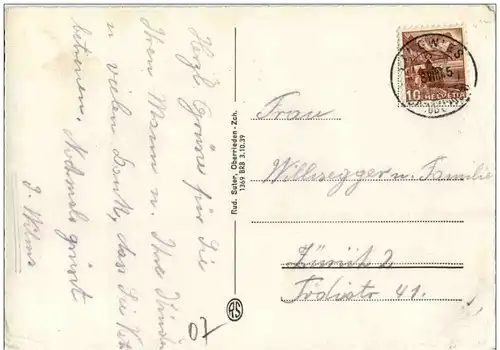 Herzl. Grüsse für Sie
Ihren Mann u. Ihre Kinder
u vielen Dank, dass Sie
betreuen. Nochmals grüsst
J. Wilms
Rud. Suter, Oberrieden-Zch.
1369 BRB 3.10.39
RS
07
LANGWIES
10 HELVETIA
Frau
Willisegger u. Familie
Zürich 2
Tödistr 41.